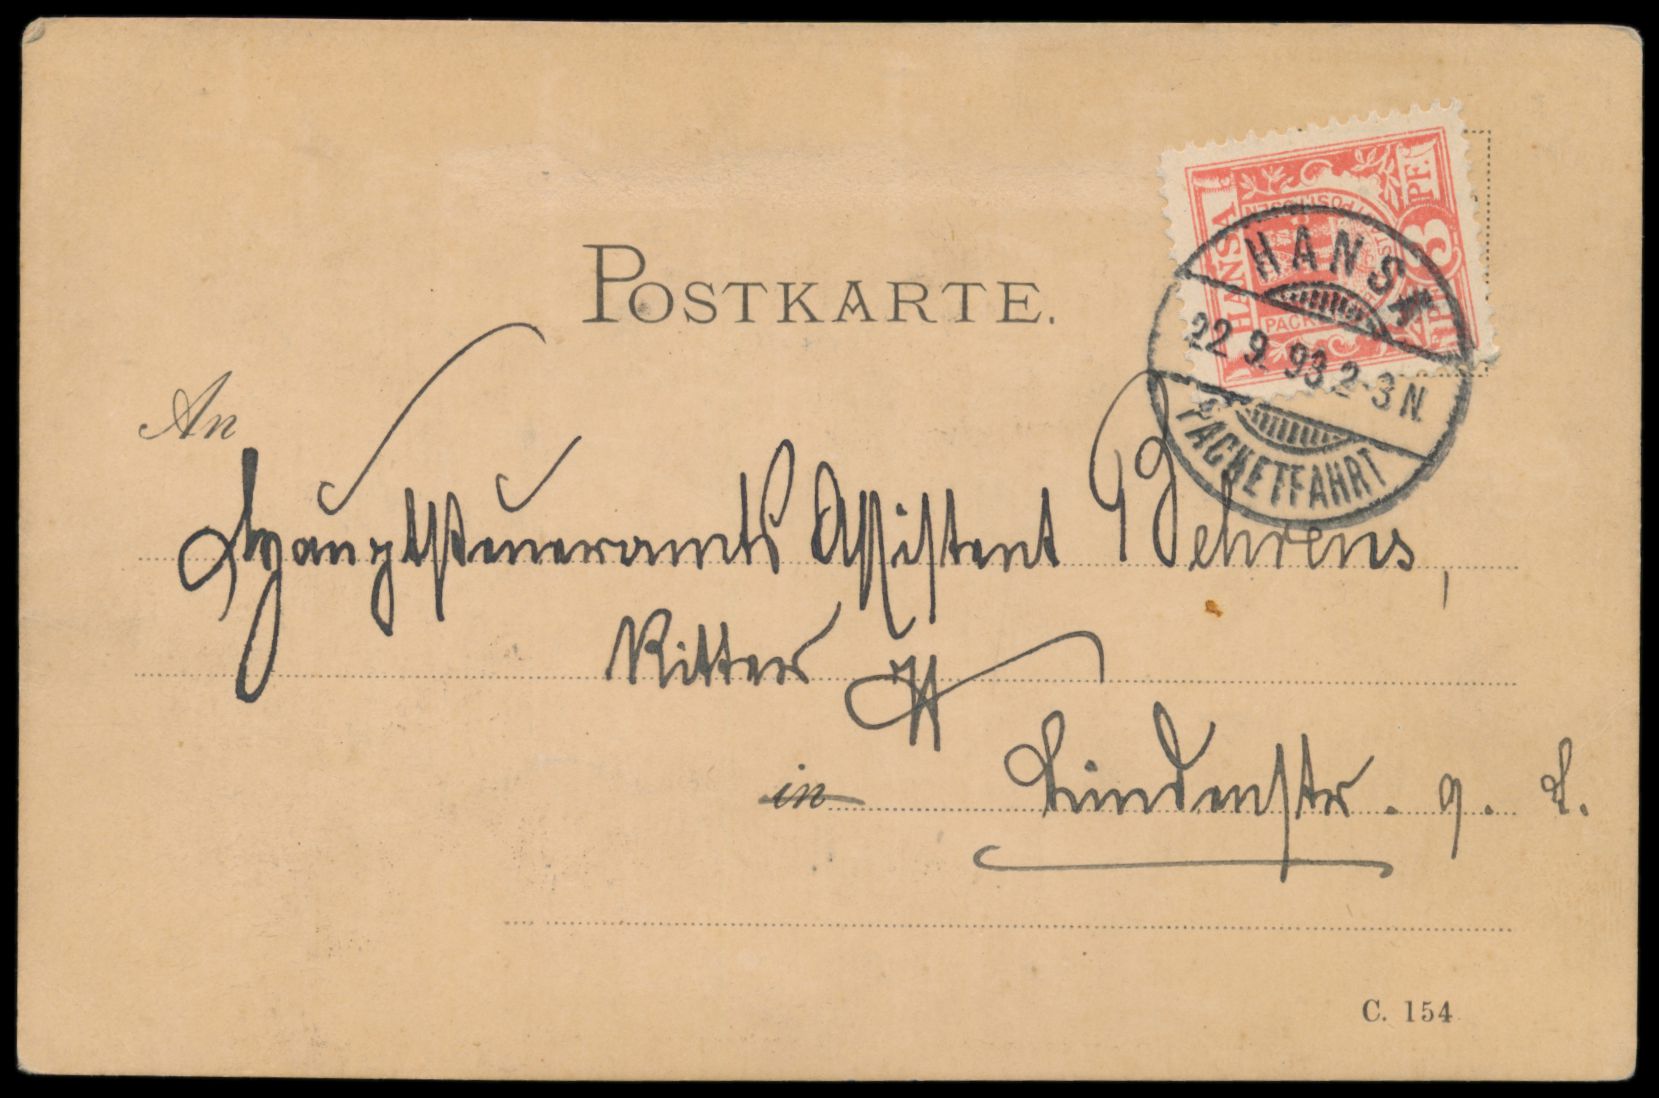 POSTKARTE.
HANSA
3 PF.
HANSA
22.9.93.2-3N.
PACKETFAHRT
An
Hauptsteueramts Assistent Behrens,
Ritter
in Lindenstr. 9. I.
C. 154